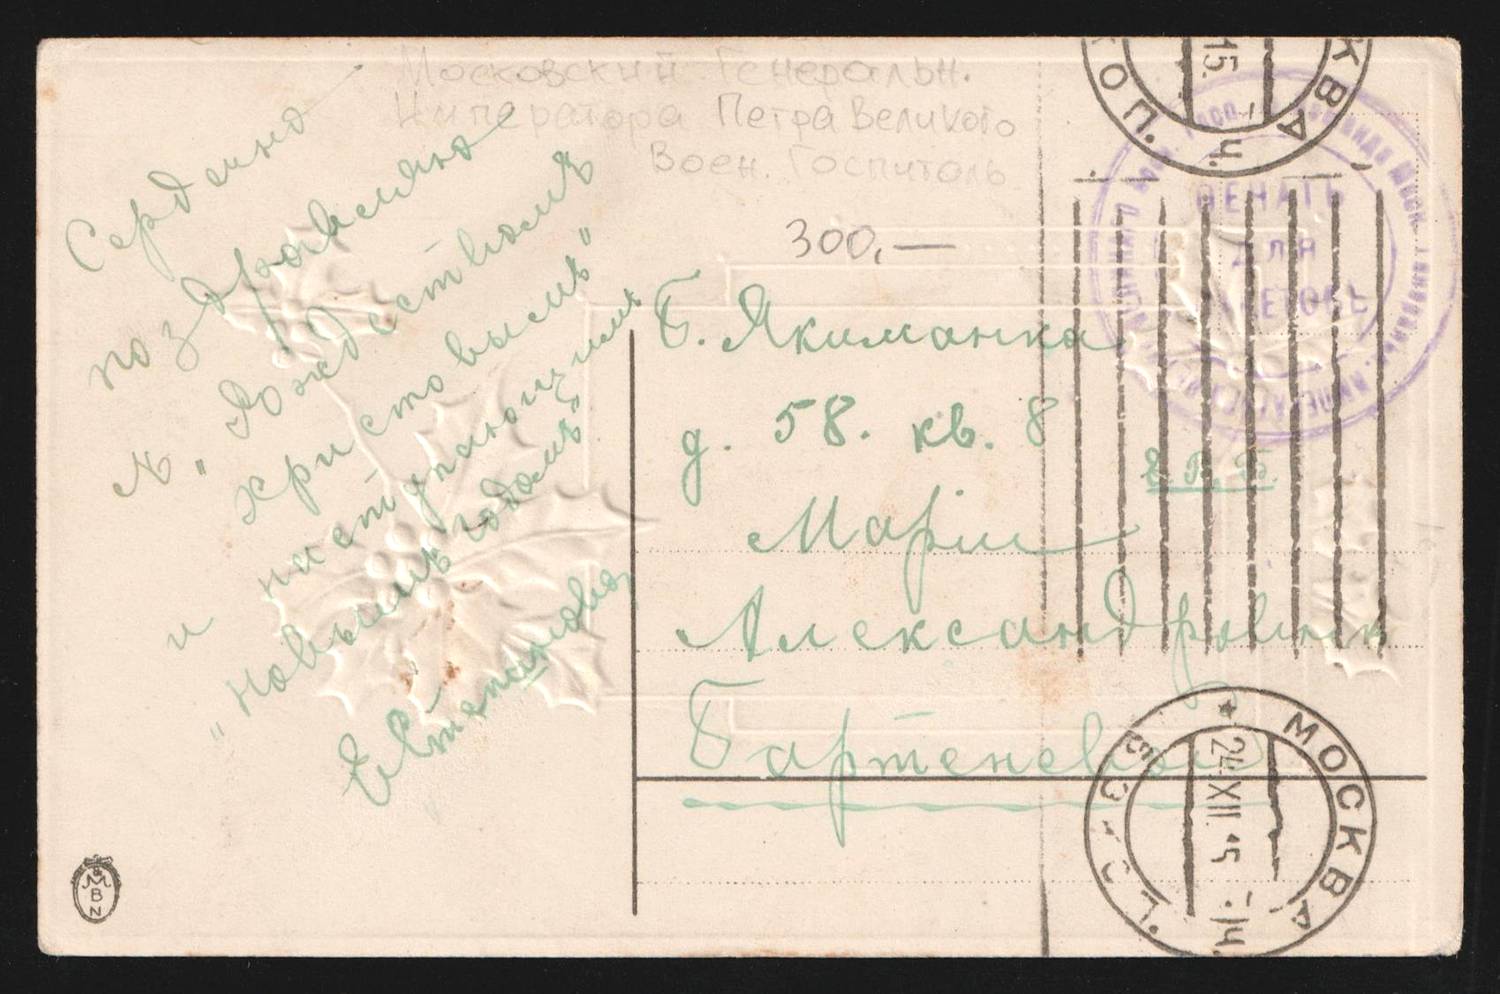 Московский Генеральн.
Императора Петра Великого
Воен. Госпиталь
300,—
Сердечно
поздравляю
съ "Рождествомъ
Христовымъ"
и наступающимъ
"Новымъ годомъ"
Е Степанова
Б. Якиманка
д. 58. кв. 8
Е. В. Б.
Маріи
Александровнѣ
Бартеневой
МОСКВА
15.
МОСКВА
24.XII.15
ПЕЧАТЬ
ДЛЯ
ПАКЕТОВЪ
M
B
N